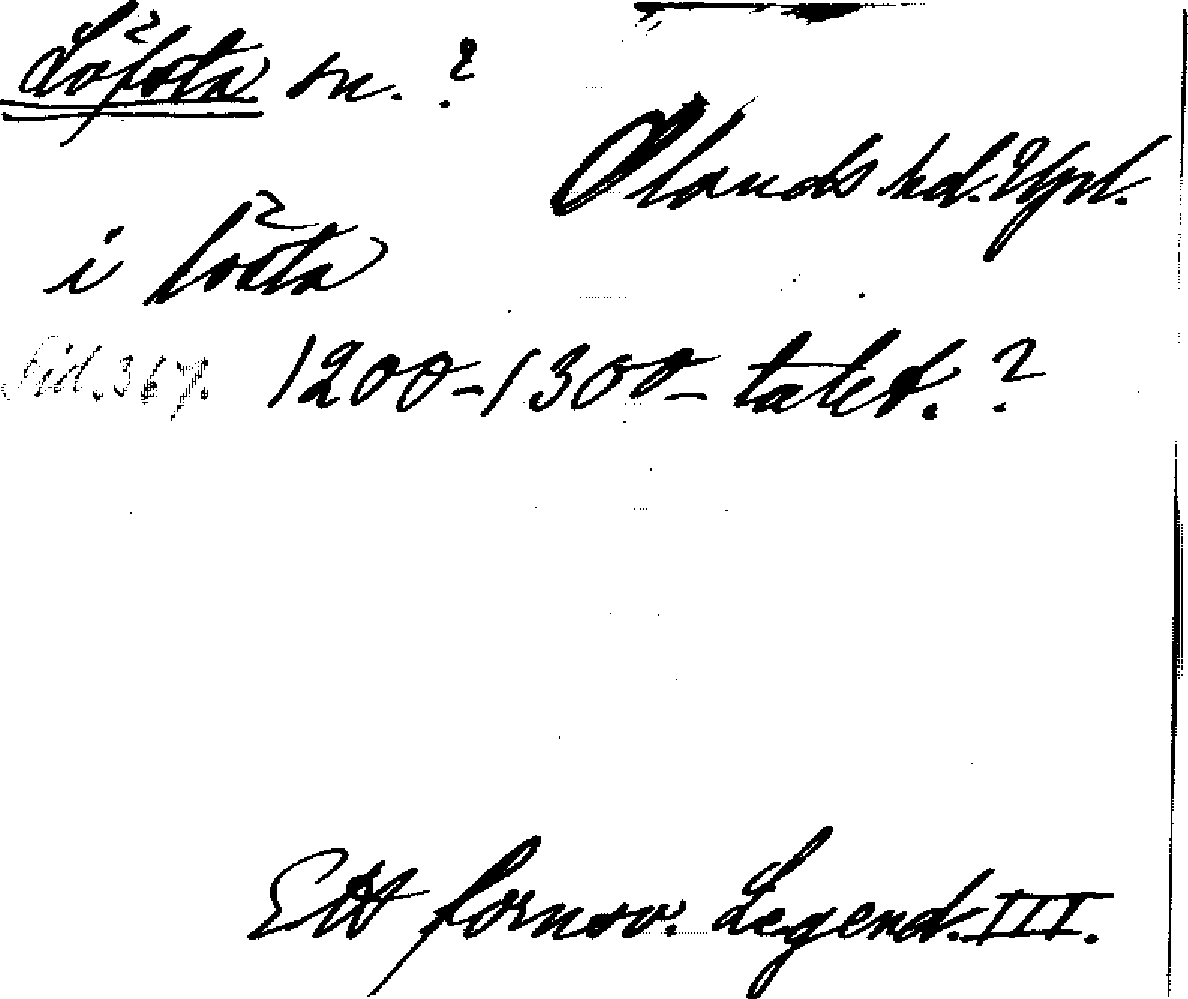 Löfsta sn. ?
Olands hd. Upl.
i lösta
Sid. 367. 1200-1300-talet. ?
Ett fornsv. Legend. III.